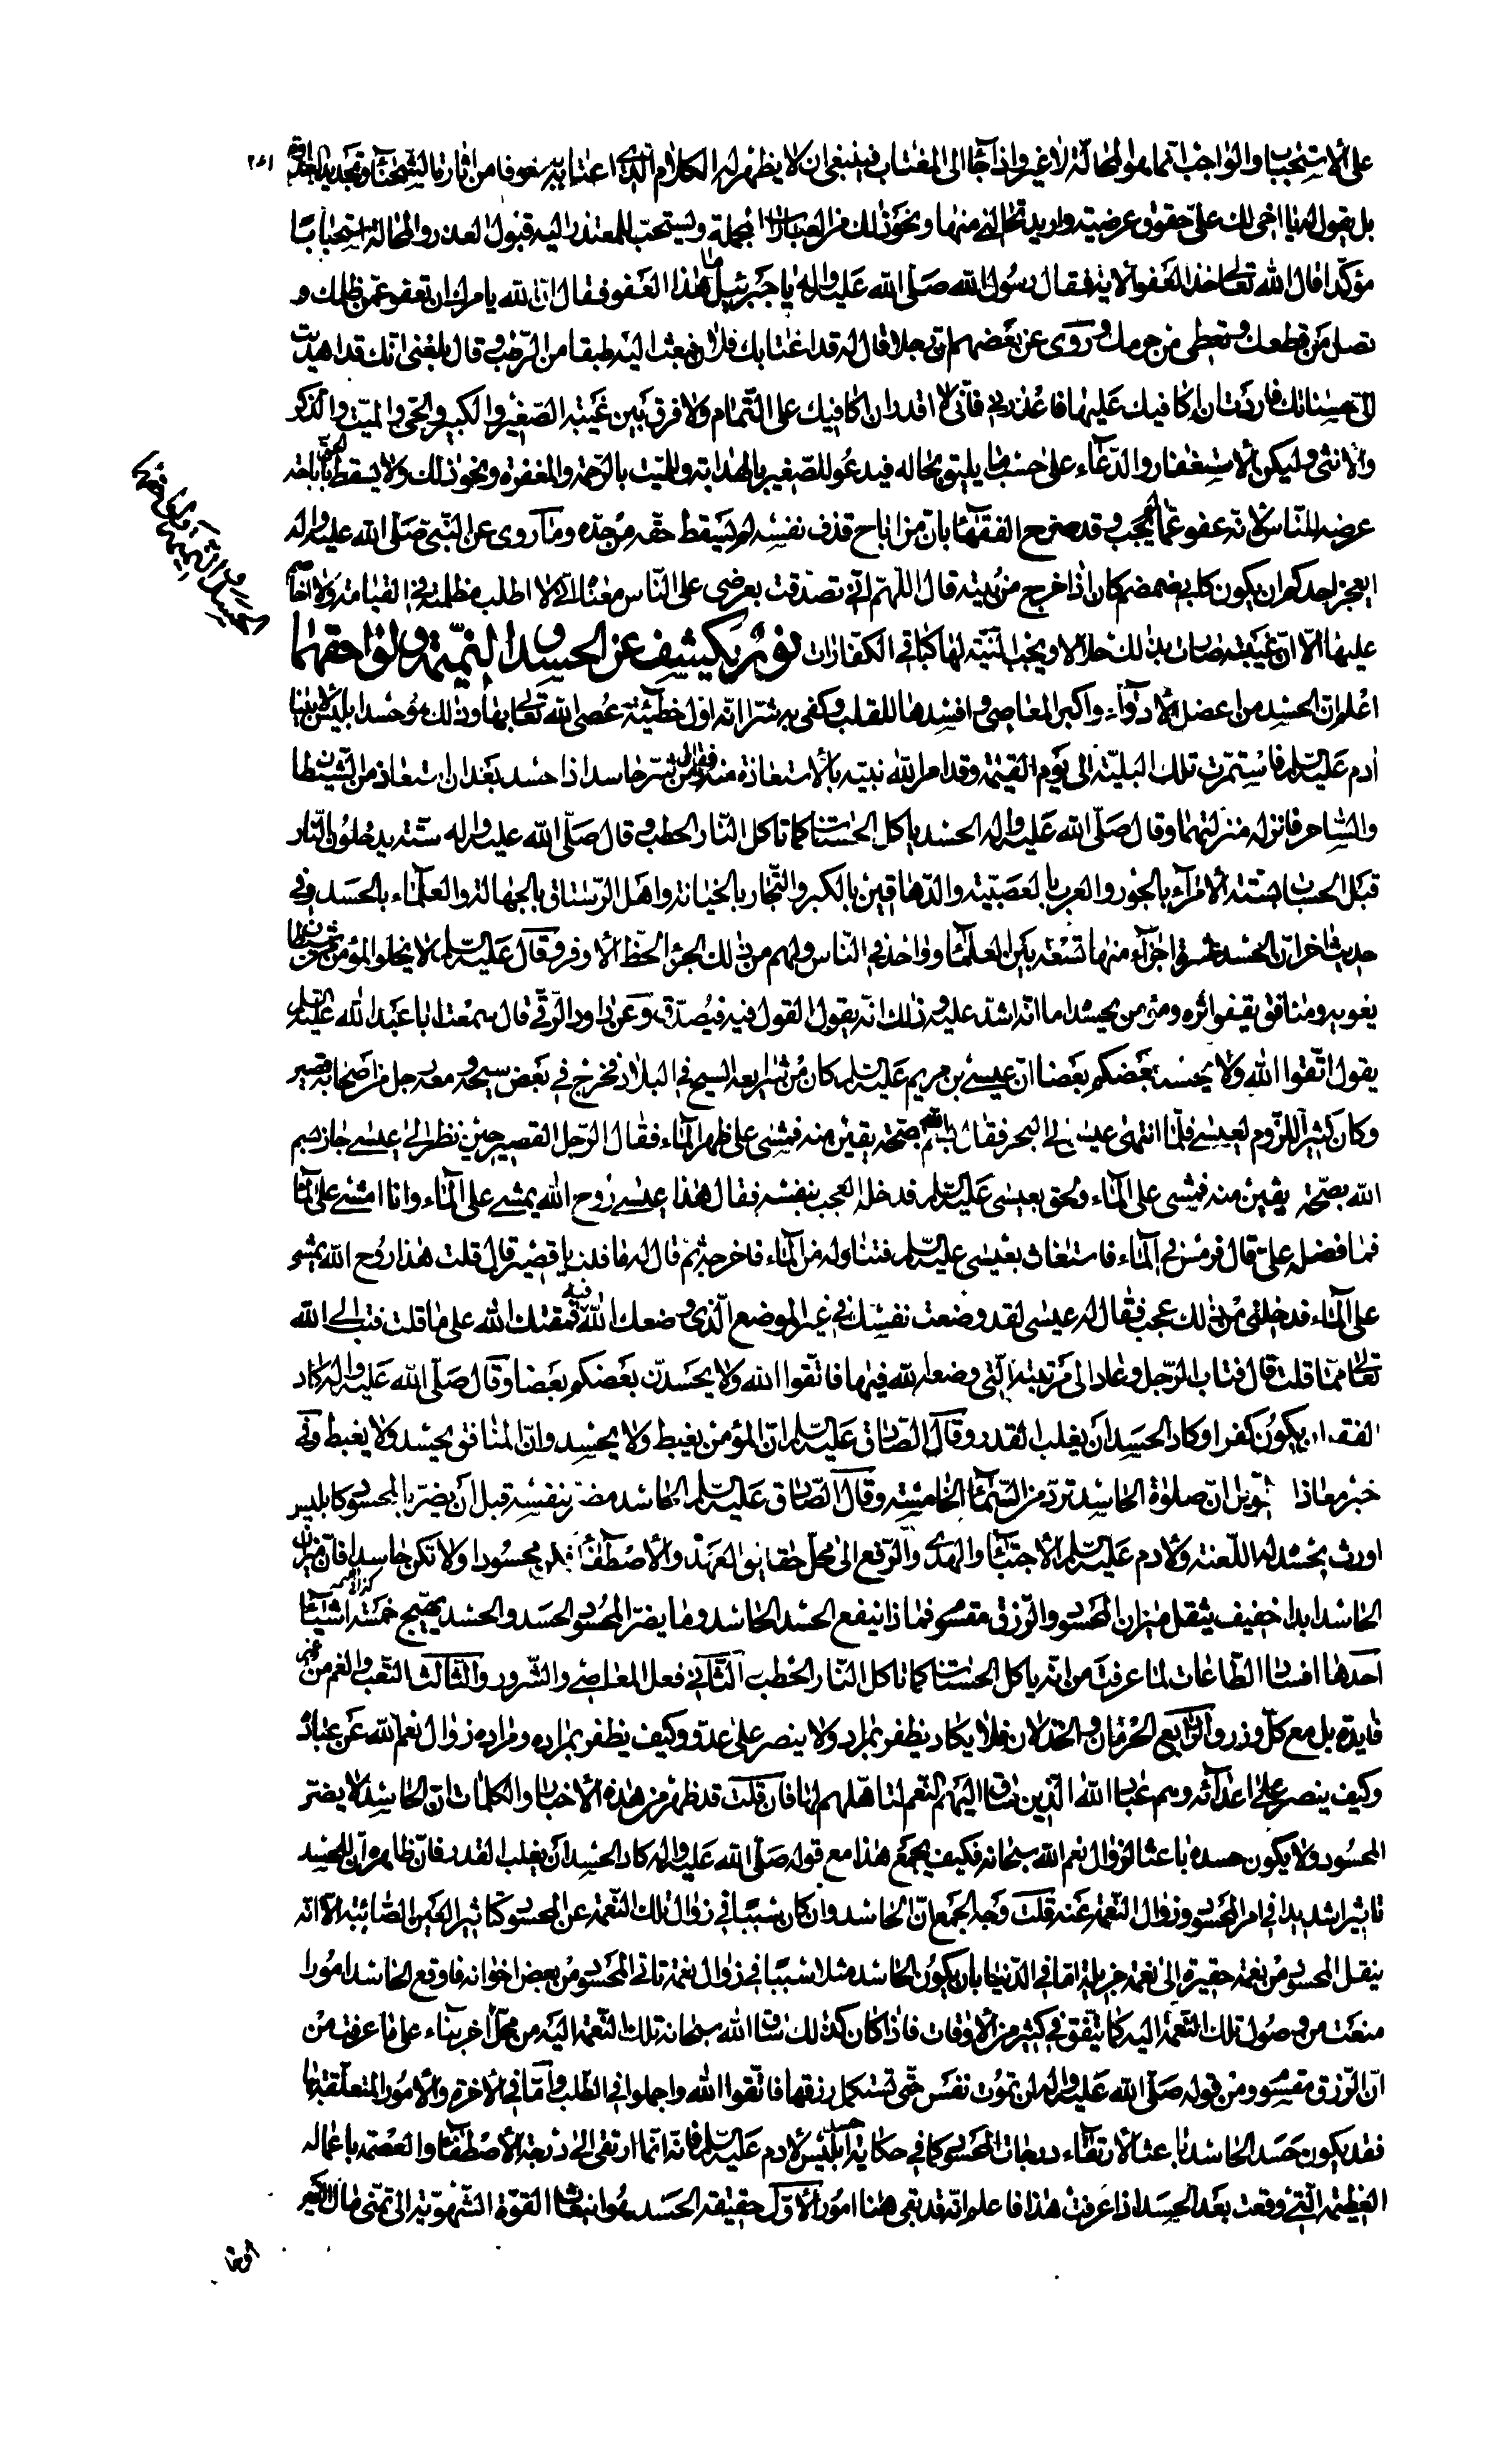 على الاستحباب والواجب انما هو المحالة لا غير واذا جاء الى المغتاب فينبغي ان لا يظهر له الكلام الذي اغتابه به خوفا من اثارة الشحناء وتجديد العداوة
بل يقول له يا اخي لك علي حقوق عرضية واريد تحاللني منها ونحو ذلك من العبارات المجملة ويستحب للمعتذر اليه قبول العذر والمحالة استحبابا
مؤكدا قال الله تعالى خذ العفو الاية فقال رسول الله صلى الله عليه واله يا جبرئيل ما هذا العفو فقال ان الله يامرك ان تعفو عمن ظلمك و
تصل من قطعك وتعطي من حرمك وروى عن بعضهم ان رجلا قال له قد اغتابك فلان فبعث اليه طبقا من الرطب وقال بلغني انك قد اهديت
الي حسناتك فاردت ان اكافيك عليها فاعذرني فاني لا اقدر ان اكافيك على التمام ولا فرق بين غيبة الصغير والكبير والحي والميت والذكر
والانثى وليكن الاستغفار والدعاء على حسب ما يليق بحاله فيدعو للصغير بالهداية وللميت بالرحمة والمغفرة ونحو ذلك ولا يسقط الحق باباحة
عرضه للناس لانه عفو عما لم يجب وقد صرح الفقهاء بان من اباح قذف نفسه لم يسقط حقه من حده وما روى عن النبي صلى الله عليه واله
ايعجز احدكم ان يكون كابي ضمضم كان اذا خرج من بيته قال اللهم اني تصدقت بعرضي على الناس معناه اني لا اطلب مظلمته في القيامة ولا اخاصم
عليها لا ان غيبته صارت بذلك حلالا ويجب النية لها كباقي الكفارات نور يكشف عن الحسد والنميمة ولواحقهما
اعلم ان الحسد من اعضل الادواء واكبر المعاصي وافسدها للقلب وكفى به شرا انه اول خطيئة عصى الله تعالى بها وذلك هو حسد ابليس لابينا
ادم عليه السلم فاستمرت تلك البلية الى يوم القيمة وقد امر الله نبيه بالاستعاذة منه فقال ومن شر حاسد اذا حسد بعد ان استعاذ من الشيطان
والساحر فانزله منزلتهما وقال صلى الله عليه واله الحسد ياكل الحسنات كما تاكل النار الحطب وقال صلى الله عليه واله ستة يدخلون النار
قبل الحساب بستة الامراء بالجور والعرب بالعصبية والدهاقين بالكبر والتجار بالخيانة واهل الرستاق بالجهالة والعلماء بالحسد وفي
حديث اخر ان الحسد عشرة اجزاء منها تسعة بين العلماء وواحد في الناس ولهم من ذلك الجزء الحظ الاوفر وقال عليه السلم لا يخلو المؤمن من شيطان
يغويه ومنافق يقفو اثره ومؤمن يحسده اما انه اشد عليه وذلك انه يقول القول فيه فيصدق وعن داود الرقي قال سمعت ابا عبد الله عليه السلم
يقول اتقوا الله ولا يحسد بعضكم بعضا ان عيسى بن مريم عليه السلم كان من شرايعه السيح في البلاد فخرج في بعض سيحه ومعه رجل من اصحابه قصير
وكان كثير اللزوم لعيسى فلما انتهى عيسى الى البحر فقال بسم الله بصحة يقين منه فمشى على ظهر الماء فقال الرجل القصير حين نظر الى عيسى جازه بسم
الله بصحة يقين منه فمشى على الماء ولحق بعيسى عليه السلم فدخله العجب بنفسه فقال هذا عيسى روح الله يمشي على الماء وانا امشي على الماء
فما فضله علي قال فرمس في الماء فاستغاث بعيسى عليه السلم فتناوله من الماء فاخرجه ثم قال له ما قلت يا قصير قال قلت هذا روح الله يمشي
على الماء فدخلني من ذلك عجب فقال له عيسى لقد وضعت نفسك في غير الموضع الذي وضعك الله فيه فمقتك الله على ما قلت فتب الى الله
تعالى مما قلت قال فتاب الرجل وعاد الى مرتبته التي وضعه الله فيها فاتقوا الله ولا يحسدن بعضكم بعضا وقال صلى الله عليه واله كاد
الفقر ان يكون كفرا وكاد الحسد ان يغلب القدر وقال الصادق عليه السلم ان المؤمن يغبط ولا يحسد وان المنافق يحسد ولا يغبط وفي
خبر معاذ ان صلوة الحاسد ترد من السماء الخامسة وقال الصادق عليه السلم الحاسد مضر بنفسه قبل ان يضر بالمحسود كابليس
اورث بحسده له اللعنة ولادم عليه السلم الاجتباء والهدى والرفع الى محل حقايق العهد والاصطفاء فكن محسودا ولا تكن حاسدا فان ميزان
الحاسد ابدا خفيف بثقل ميزان المحسود والرزق مقسوم فماذا ينفع الحسد الحاسد وما يضر المحسود الحسد والحسد يهيج خمسة اشياء
احدها افساد الطاعات لما عرفت من انه ياكل الحسنات كما تاكل النار الحطب الثاني فعل المعاصي والشرور والثالث التعب والغم من غير
فايدة بل مع كل وزر والرابع الحرمان والخذلان فلا يكاد يظفر بمراد ولا ينصر على عدو وكيف يظفر بمراده ومراده زوال نعم الله عن عباده
وكيف ينصر على اعدائه وهم عباد الله الذين ساق اليهم النعم لتاهلهم لها فان قلت قد ظهر من هذه الاخبار والكلمات ان الحاسد لا يضر
المحسود ولا يكون حسده باعثا لزوال نعم الله سبحانه فكيف يجمع هذا مع قوله صلى الله عليه واله كاد الحسد ان يغلب القدر فان ظاهره ان للحسد
تاثيرا شديدا في امر المحسود وزوال النعمة عنه قلت وجه الجمع ان الحاسد وان كان سببا في زوال تلك النعمة عن المحسود كتاثير العين الصائبة الا انه
ينقل المحسود من نعمة حقيرة الى نعمة جزيلة اما في الدنيا بان يكون الحاسد مثلا سببا في زوال نعمة تاتي المحسود من بعض اخوانه فاوقع الحاسد امورا
منعت من وصول تلك النعمة اليه كما يتفق في كثير من الاوقات فاذا كان كذلك ساق الله سبحانه تلك النعمة اليه من محل اخر بناء على ما عرفت من
ان الرزق مقسوم ومن قوله صلى الله عليه واله لن تموت نفس حتى تستكمل رزقها فاتقوا الله واجملوا في الطلب واما في الاخرة والامور المتعلقة بها
فقد يكون حسد الحاسد باعثا لارتقاء درجات المحسود كما في حكاية حسد ابليس لادم عليه السلم فانه انما ارتقى الى درجة الاصطفاء والعصمة باعماله
العظيمة التي وقعت بعد الحسد اذا عرفت هذا فاعلم انه قد بقى هنا امور الاول حقيقة الحسد هو انبعاث القوة الشهوية الى تمني مال الغير